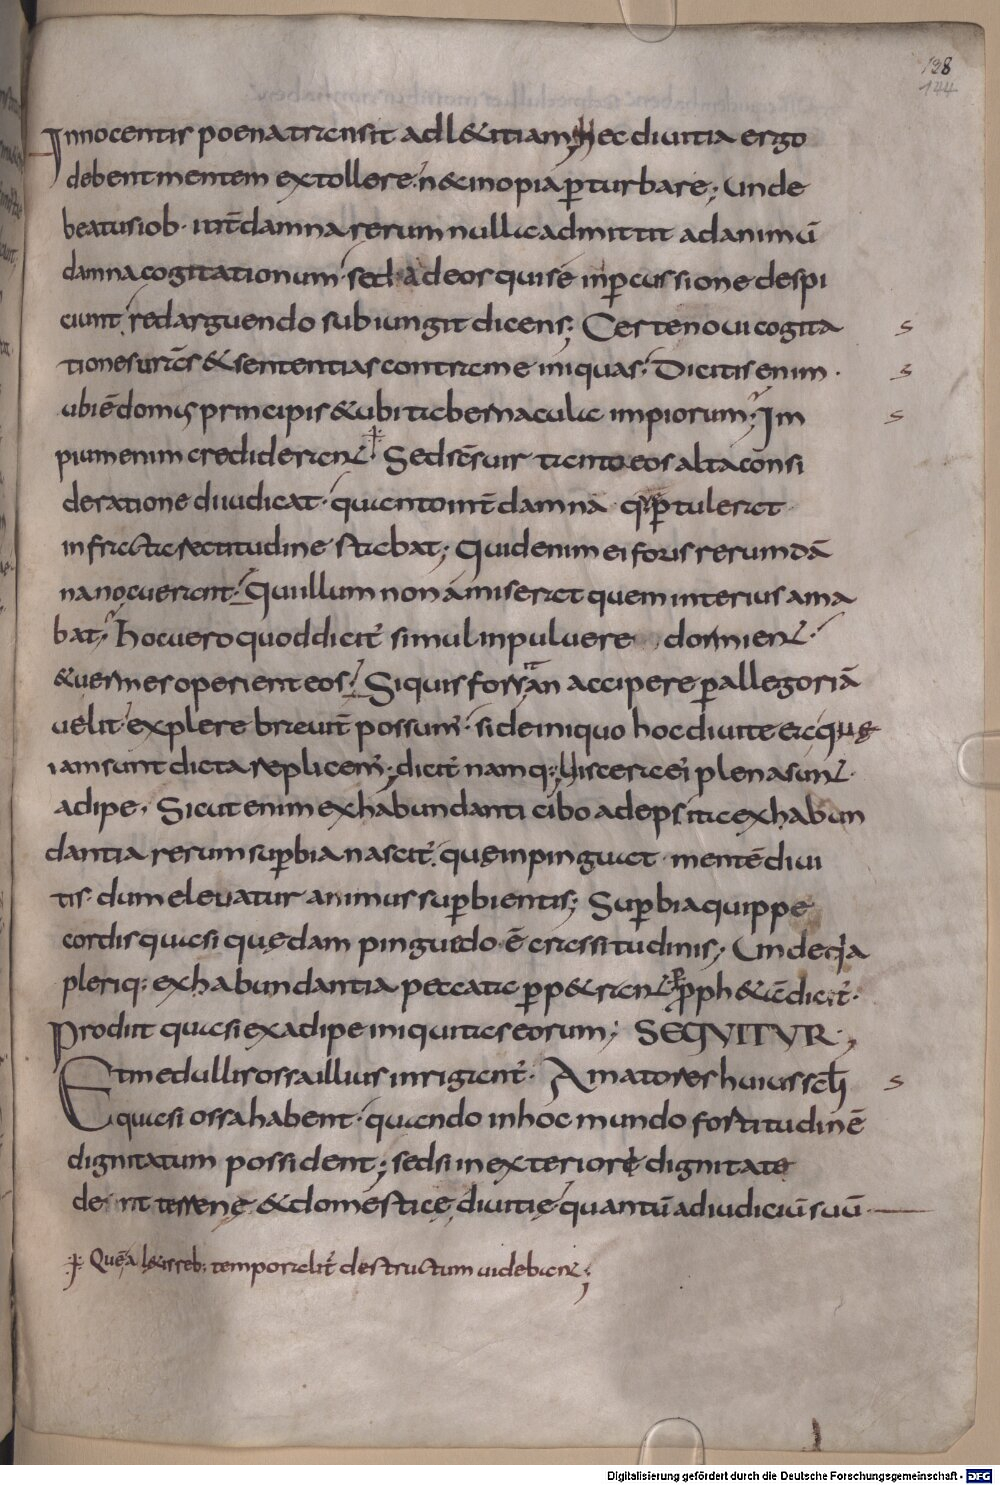 138
144
Innocentis poena transit ad l&itiam; hec divitia ergo
debent mentem extollere. n& inopia p̄turbare; Unde
beatus iob. int̄ damna rerum nulla admittit ad animū
damna cogitationum. sed adeos qui se inp̄cussione despi
ciunt redarguendo subiungit dicens; Certe novi cogita
tiones ur̄as & sententias contra me iniquas; Dicitis enim.
ubi ē domus principis & ubi tabernacula impiorum; Im
pium enim crediderant Sed sc̄s vir tanto eos alta consi
deratione diiudicat. quanto int̄ damna q p̄tulerat
in fracta rectitudine stabat; Quid enim ei foris rerum dā
na nocuerant. Qui illum non amiserat quem interius ama
bat; hoc vero quod dicit̄ simul in pulvere dormient.
& vermes operient eos; Si quis forsan accipere p̄ allegoriā
velit. explere brevit̄ possum̄. si de iniquo hoc divite ea quę
iam sunt dicta replicem̄; dicit̄ namq; Viscera ei plena sunt
adipe. Sicut enim ex habundanti cibo adeps. ita ex habun
dantia rerum sup̄bia nascit̄. quę inpinguat mentē divi
tis. dum elevatur animus sup̄bientis; Sup̄bia quippe
cordis quasi quędam pinguedo ē crassitudinis; Unde q̄a
pleriq; ex habundantia peccata p̄p&rant. p pph&ā dicit̄.
Prodiit quasi ex adipe iniquitas eorum; SEQVITVR.
Et medullis ossa illius inrigant̄. Amatores huius sc̄li
quasi ossa habent. quando in hoc mundo fortitudinē
dignitatum possident; sed si in exteriore dignitate
desint terrenę & domesticę divitię. quantū ad iudiciū suū
Quē a l&isseb; temporalit̄ destructum videbant;
s
s
s
s
Digitalisierung gefördert durch die Deutsche Forschungsgemeinschaft - DFG